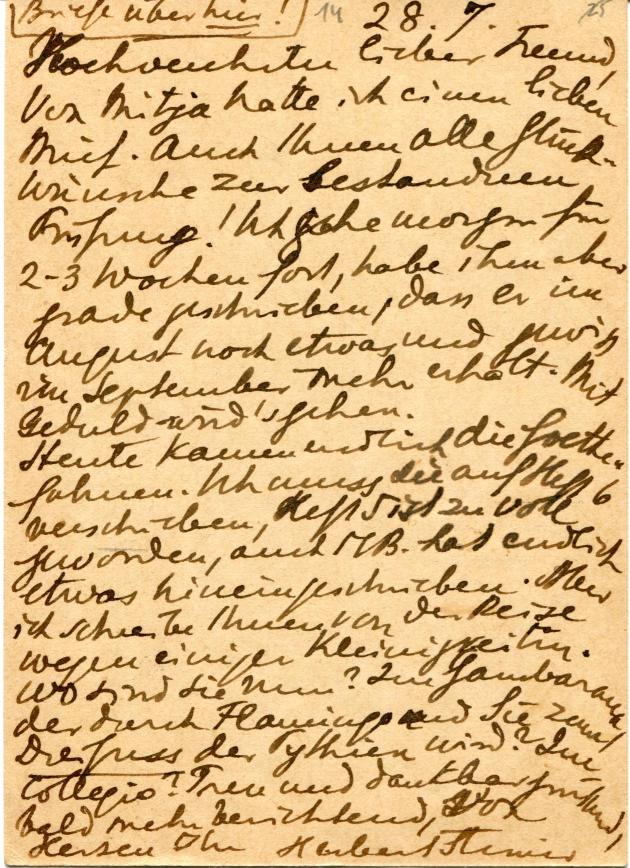 Briefe über hier! 14 28. 7. 25
Hochverehrter lieber Freund,
Von Mitja hatte ich einen lieben
Brief. Auch Ihnen alle Glück-
wünsche zur bestandnen
Prüfung! Ich gehe morgen für
2-3 Wochen fort, habe ihm aber
grade geschrieben, dass er im
August noch etwas und gewiss
im September mehr erhält. Mit
Geduld wird's gehen.
Heute kamen endlich die Goethe-
fahnen. Ich muss sie auf Heft 6
verschieben, Heft 5 ist zu voll
geworden, auch MB. hat endlich
etwas hineingeschrieben. Aber
ich schreibe Ihnen von der Reise
wegen einiger Kleinigkeiten.
Wo sind Sie nun? Im
der durch Flamingo und Sie zum
Dreifuss der Pythien wird? Im
Collegio? Treu und dankbar grüssend,
bald mehr berichtend, von
Herzen Ihr Herbert Steiner